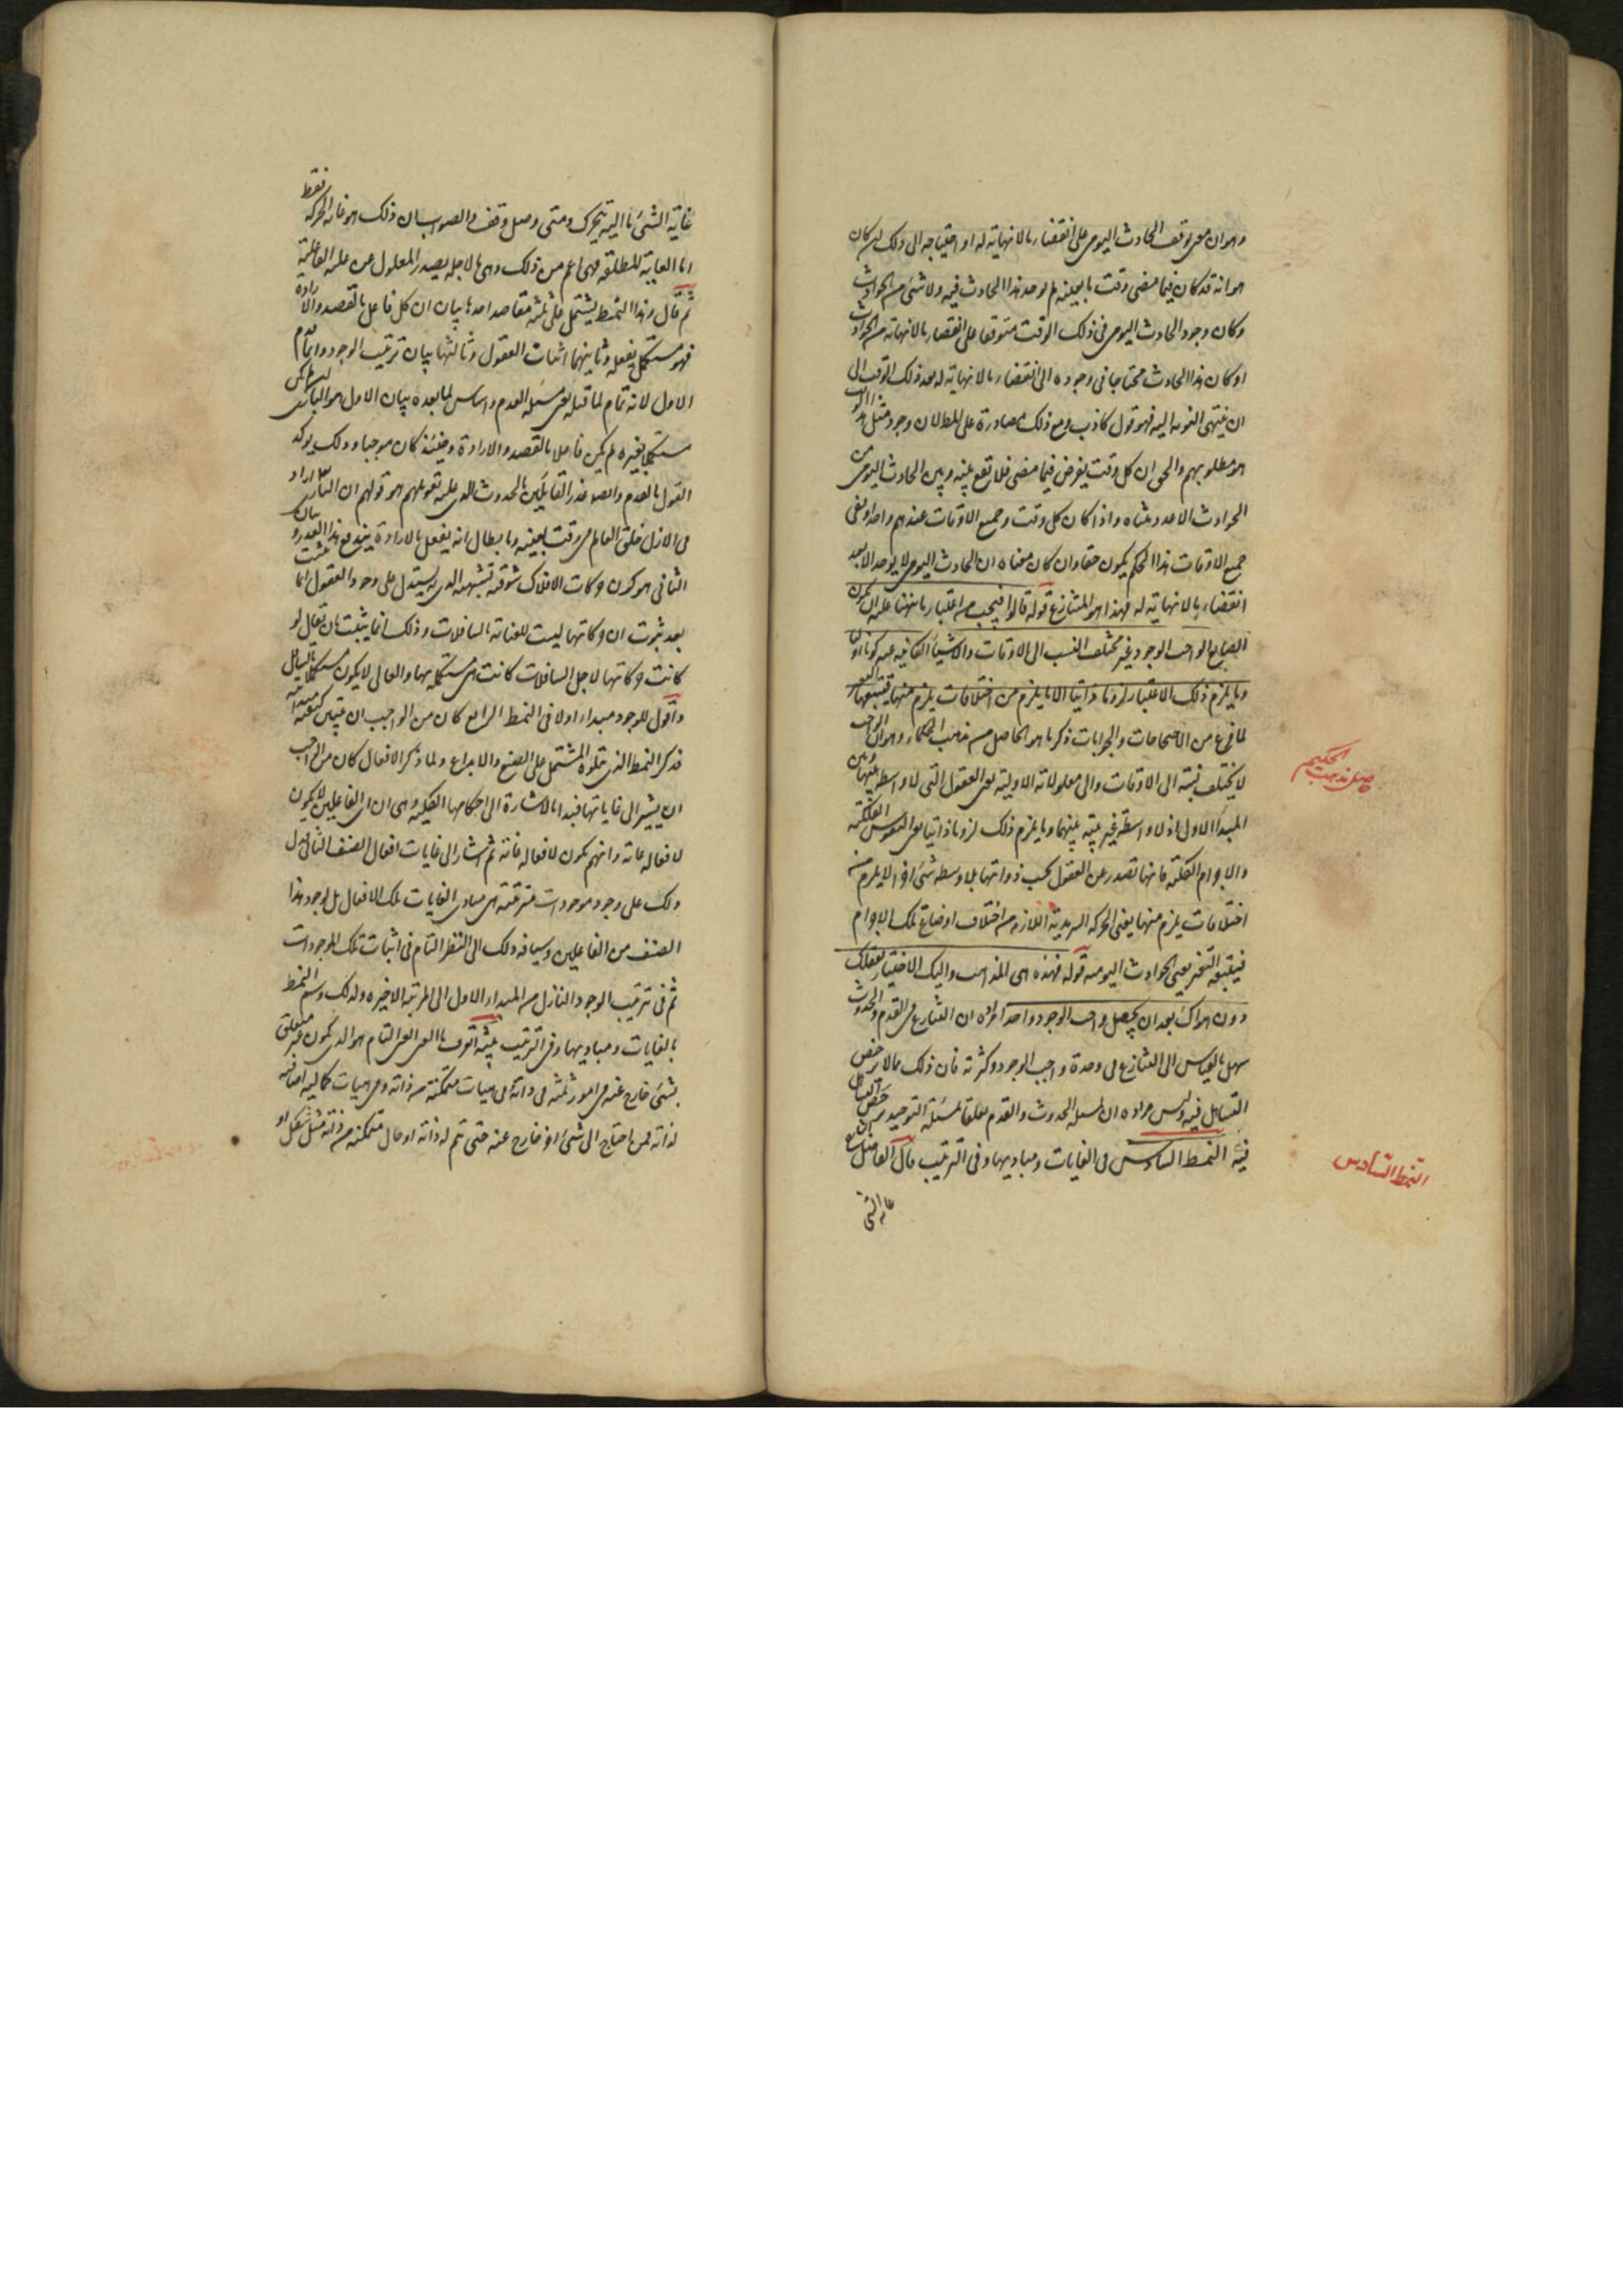 وهو ان معنى توقف الحادث اليومى على انقضاء ما لا نهاية له او احتياجه الى ذلك ان كان
هو انه قد كان فيما مضى وقت ما بعينه لم يوجد هذا الحادث فيه ولا شئ من الحوادث
وكان وجود الحادث اليومى فى ذلك الوقت متوقفا على انقضاء ما لا نهاية من الحوادث
او كان هذا الحادث محتاجا فى وجوده الى انقضاء ما لا نهاية له بعد ذلك الوقت الى
ان ينتهى النوبه اليه فهو قول كاذب ومع ذلك مصادرة على المطلوب ان وجود مثل هذا الوقت
هو مطلوبهم والحق ان كل وقت يفرض فيما مضى فلا يقع بينه وبين الحادث اليومى من
الحوادث الا عدد متناه واذا كان كل وقت وجميع الاوقات عندهم واحدا ففى
جميع الاوقات هذا الحكم يكون حقا وان كان معناه ان الحادث اليومى لا يوجد الا بعد
انقضاء ما لا نهاية له فهذا هو المتنازع قوله قالوا فيجب من اعتبار ما نبهنا عليه ان يكون
الصانع الواجب الوجود غير مختلف النسب الى الاوقات والاشياء الكائنة عنه كونا اوليا
وما يلزم ذلك الاعتبار لزوما ذاتيا الا ما يلزم من اختلافات يلزم منها فيتبعها التغير
لما فرغ من الاحتجاجات والجوابات ذكر ما هو الحاصل من مذهب الحكماء وهو ان الواجب
لا يختلف نسبته الى الاوقات والى معلولاته الاولية يعنى العقول التى لا واسطه بينها وبين
المبدأ الاول اذ لا واسطة غريبة بينهما وما يلزم ذلك لزوما ذاتيا يعنى النفوس الفلكية
والاجرام الفلكية فانها تصدر عن العقول بحسب ذواتها بلا واسطه شئ اخر الا ما يلزم من
اختلافات يلزم منها يعنى الحركة السرمدية اللازمة من اختلاف اوضاع تلك الاجرام
فيتبعها التغير يعنى الحوادث اليومية قوله فهذه هى المذاهب واليك الاختيار بعقلك
دون هواك بعد ان تجعل واجب الوجود واحدا مراده ان التنازع فى القدم والحدوث
سهل بالقياس الى التنازع فى وحدة واجب الوجود وكثرته فان ذلك مما لا يرخص
التساهل فيه وليس مراده ان لمسئلة الحدوث والقدم تعلقا بمسئلة التوحيد
النمط السادس فى الغايات ومباديها وفى الترتيب قال الفاضل الشارح
غاية الشئ
حاصل مذهب الحكيم
النمط السادس
غاية الشئ ما اليه يتحرك ومتى وصل وقف والصواب ان ذلك هو غاية الحركة فقط
اما الغاية المطلقة فهى اعم من ذلك وهى ما لاجله يصدر المعلول عن علته الفاعلية
ثم قال وهذا النمط يشتمل على ثلثه مقاصد احدها بيان ان كل فاعل بالقصد والارادة
فهو مستكمل بفعله وثانيهما اثبات العقول وثالثها بيان ترتيب الوجود وانما قدم
الاول لانه تمام لما قبله يعنى مسئلة القدم واساس لما بعده بيان الاول هو ان البارى لو لم يكن
مستكملا بغيره لم يكن فاعلا بالقصد والارادة وحينئذ كان موجبا وذلك يؤكد
القول بالقدم وايضا عذر القائلين بالحدوث الذى عليه تعويلهم هو قولهم ان البارى اراد
فى الازل خلق العالم فى وقت بعينه وبابطال انه يفعل بالارادة يندفع هذا العذر وبيان
الثانى هو كون حركات الافلاك شوقية تشبهية الذى يستدل على وجود العقول انما يثبت
بعد ثبوت ان حركاتها ليست للعناية بالسافلات وذلك انما يثبت بان يقال لو
كانت حركاتها لاجل السافلات كانت هى مستكملة بها والعالى لا يكون مستكملا بالسافل
واقول للوجود مبداء اولا فى النمط الرابع كان من الواجب ان يبين كيفية مبدأيته
فذكر النمط الذى يتلوه المشتمل على الصنع والابداع ولما ذكر الافعال كان من الواجب
ان يشير الى غاياتها فبدأ بالاشارة الى احكامها الكلية وهى ان اى الفاعلين لا يكون
لافعاله غاية وانهم يكون لافعاله غاية ثم اشار الى غايات افعال الصنف الثانى فدل
ذلك على وجود موجودات مترتبة هى مبادى الغايات لتلك الافعال بل لوجود هذا
الصنف من الفاعلين وسياقه ذلك الى النظر التام فى اثبات تلك الموجودات
ثم فى ترتيب الوجود النازل من المبداء الاول الى المرتبة الاخيرة ولذلك وسم النمط
بالغايات ومباديها وفى الترتيب تنبيه اتعرف ما الغنى الغنى التام هو الذى يكون غير متعلق
بشئ خارج عنه فى امور ثلثه فى ذاته وفى هيئات متمكنة من ذاته وفى هيئات كمالية اضافية
لذاته فمن احتاج الى شئ اخر خارج عنه حتى يتم له ذاته او حال متمكنة من ذاته مثل شكل او